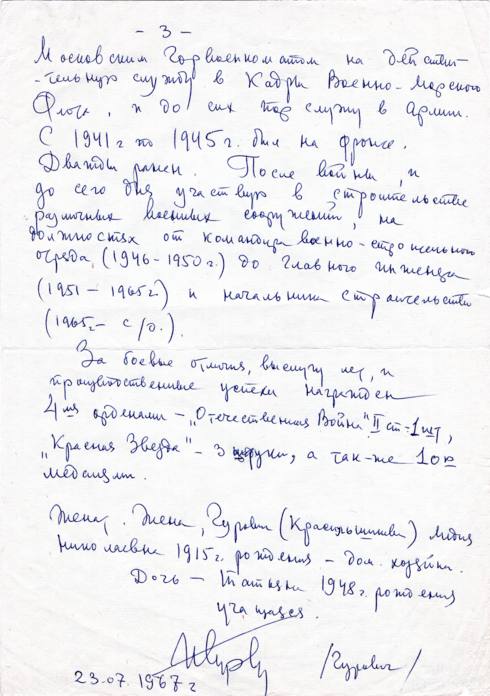 - 3 -
Московским Горвоенкоматом на действи-
-тельную службу в Кадры Военно-Морского
Флота, и до сих пор служу в Армии.
С 1941 г по 1945 г. был на фронте.
Дважды ранен. После войны, и
до сего дня участвую в строительстве
различных военных сооружений, на
должностях от командира военно-строительного
отряда (1946-1950 г.) до главного инженера
(1951 - 1965 г) и начальника строительства
(1965 г - с/д.).
За боевые отличия, выслугу лет, и
производственные успехи награжден
4мя орденами - "Отечественная Война" II ст - 1 шт,
"Красная Звезда" - 3 штуки, а так-же 10ю
медалями.
Женат. Жена, Гурович () Лидия
Николаевна 1915 г. рождения - дом. хозяйка.
Дочь - Татьяна 1948 г. рождения
учащаяся.
/Гурович/
23.07.1967 г